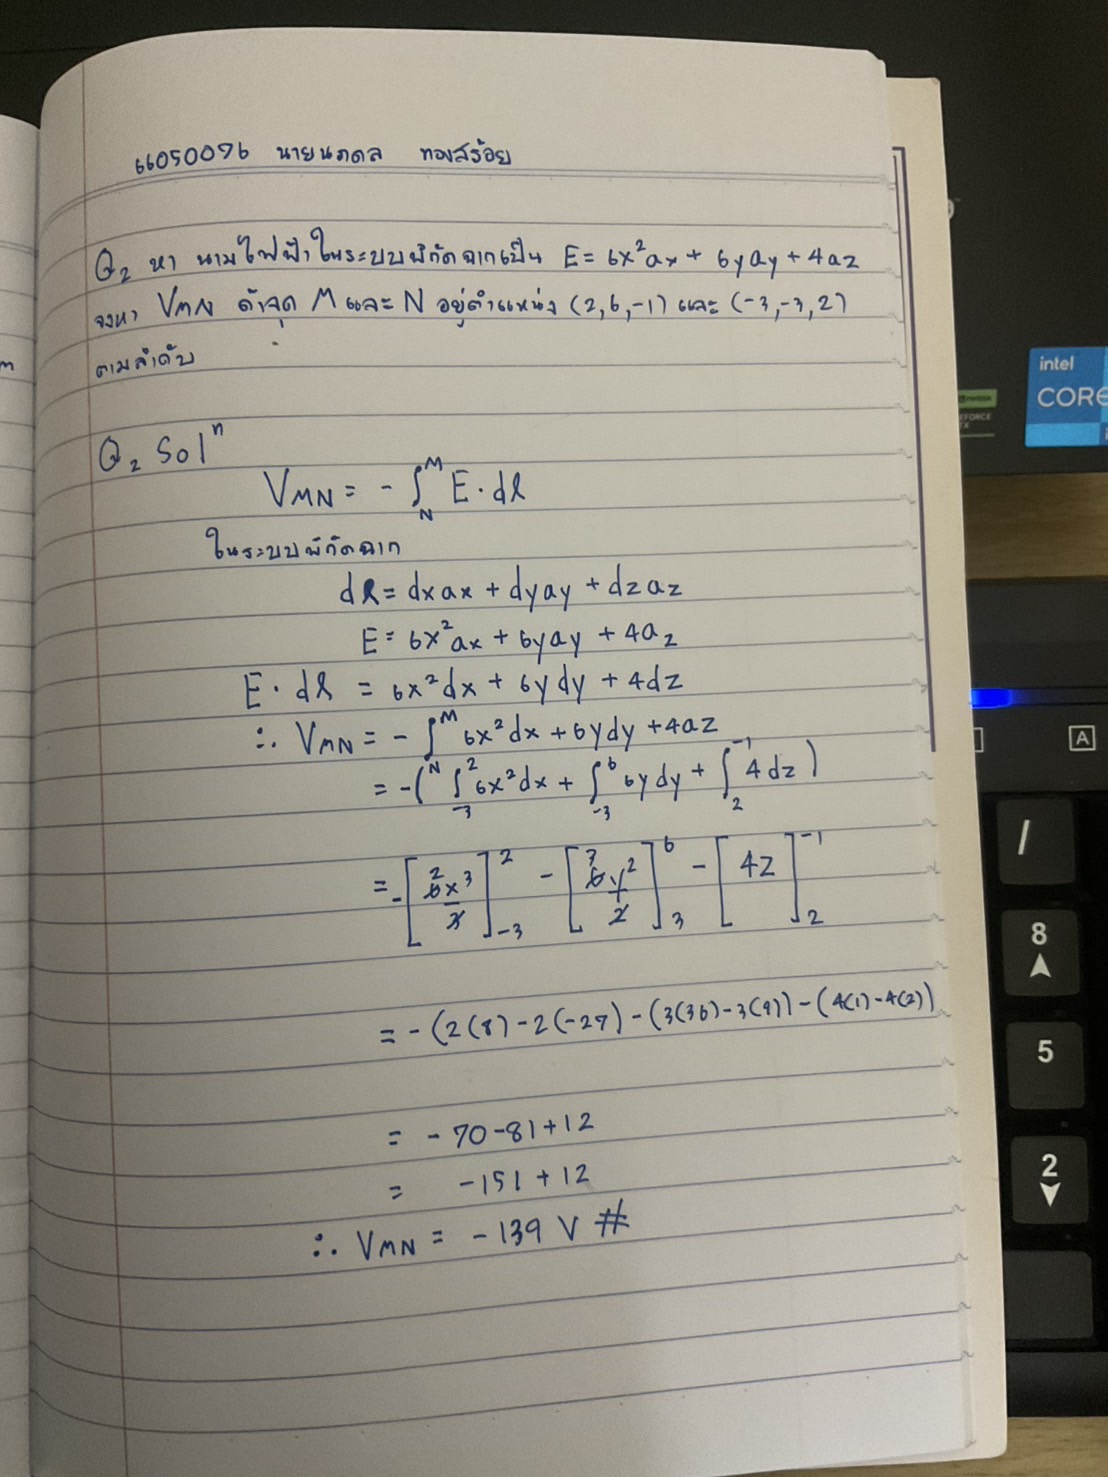 66050096 นายนภดล ทองสร้อย
Q₂ หา นามไฟฟ้าในระบบพิกัดฉากเป็น E = 6x²ax + 6yay + 4az
จงหา VMN ถ้าจุด M และ N อยู่ตำแหน่ง (2,6,-1) และ (-3,-3,2)
ตามลำดับ
Q₂ Solⁿ
VMN = - ∫_N^M E · dl
ในระบบพิกัดฉาก
dl = dxax + dyay + dzaz
E = 6x²ax + 6yay + 4az
E · dl = 6x²dx + 6ydy + 4dz
∴ VMN = - ∫_N^M 6x²dx + 6ydy + 4az
= -( ∫_-3^2 6x²dx + ∫_-3^6 6ydy + ∫_2^-1 4dz )
= -[ 6x³/3 ]_-3^2 - [ 6y²/2 ]_3^6 - [ 4z ]_2^-1
= - (2(8) - 2(-27) - (3(36) - 3(9)) - (4(1) - 4(2))
= - 70 - 81 + 12
= -151 + 12
∴ VMN = - 139 V #
intel
CORE
A
/
8
5
2